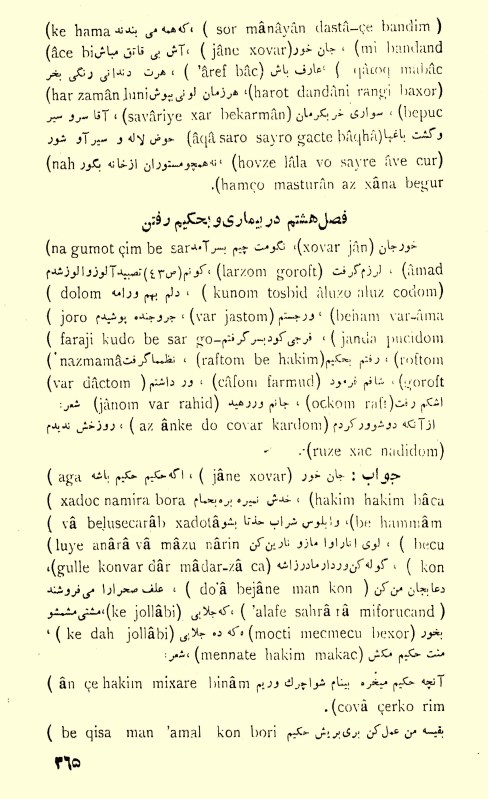 (ke hama که همه می بندند ، ( sor mânâyân dastâ-çe bandim )
(âce bi آش بی قاتق مباش ، ( jâne xovar) جان خور ، (mi bandand
( 'âref bâc) ، عارف باش ، ( qâtoq mabâc ، هرت دندانی رنگی بخر
(har zamân luni هرزمان لونی بپوش ،(harot dandâni rangi baxor)
bepuc) ، سواری خر بکرمان (savâriye xar bekarmân)، آقا سرو سیر
وگشت باغبا(âqâ saro sayro gacte bâqhâ) حوض لاله و سیرآو شور
(nah نه همچو مستوران ازخانه بگور ،(hovze lâla vo sayre âve cur)
.(hamço masturân az xâna begur
فصل هشتم در بیماری و بحکیم رفتن
(na gumot çim be sar نگومت چیم بسر آمد ،(xovar jân) خورجان
âmad) ، لرزم گرفت (larzom goroft)، کونم(ص۴۳) تصبید آلوزوالوزشدم
( dolom دلم بهم ورامه ، ( kunom tosbid âluzo âluz codom)
( joro جروجنده پوشیدم ، (var jastom) ورجستم ، (beham var-âma
( faraji kudo be sar go- فرجی کودبسرگرفتم ، ( janda pucidom
( nazmamâ نظلماگرفت ، (raftom be hakim) رفتم بحکیم ، (roftom
(var dâctom ) ور داشتم ، (câfom farmud ) شافم فرمود ، (goroft
اشکم رفت (ockom raft) ، جانم وررهید (jânom var rahid) شعر:
ازآنکه دوشوور کردم ( az ânke do covar kardom) ، روزخش ندیدم
.(ruze xac nadidom)
جواب : جان خور (jâne xovar ) ، اگه حکیم حکیم باشه ( aga
( xadoc namira bora خدش نمیره بره بحمام ، (hakim hakim bâca
( vâ belusecarâb xadotâ وابلوس شراب خدتا بشو ،(be hammâm
(luye anârâ vâ mâzu nârin لوی اناراوا مازو نارین کن ( becu
،(gulle konvar dâr mâdar-zâ ca) گوله کن وردارمادرزاشه ، ( kon
دعابجان من کن ( do'â bejâne man kon ) ، علف صحرارا می فروشند
(ke jollâbi) که جلابی ، ( 'alafe sahrâ râ miforucand ) ،مشتی مشمشو
بخور (mocti mecmecu bexor) ،که ده جلابی (ke dah jollâbi ) ،
منت حکیم مکش (mennate hakim makac) ،شعر:
آنچه حکیم میخره بینام شواچرک وریم ( ân çe hakim mixare binâm
.(covâ çerko rim
بقیسه من عمل کن بری بریش حکیم ( be qisa man 'amal kon bori
۳۶۵